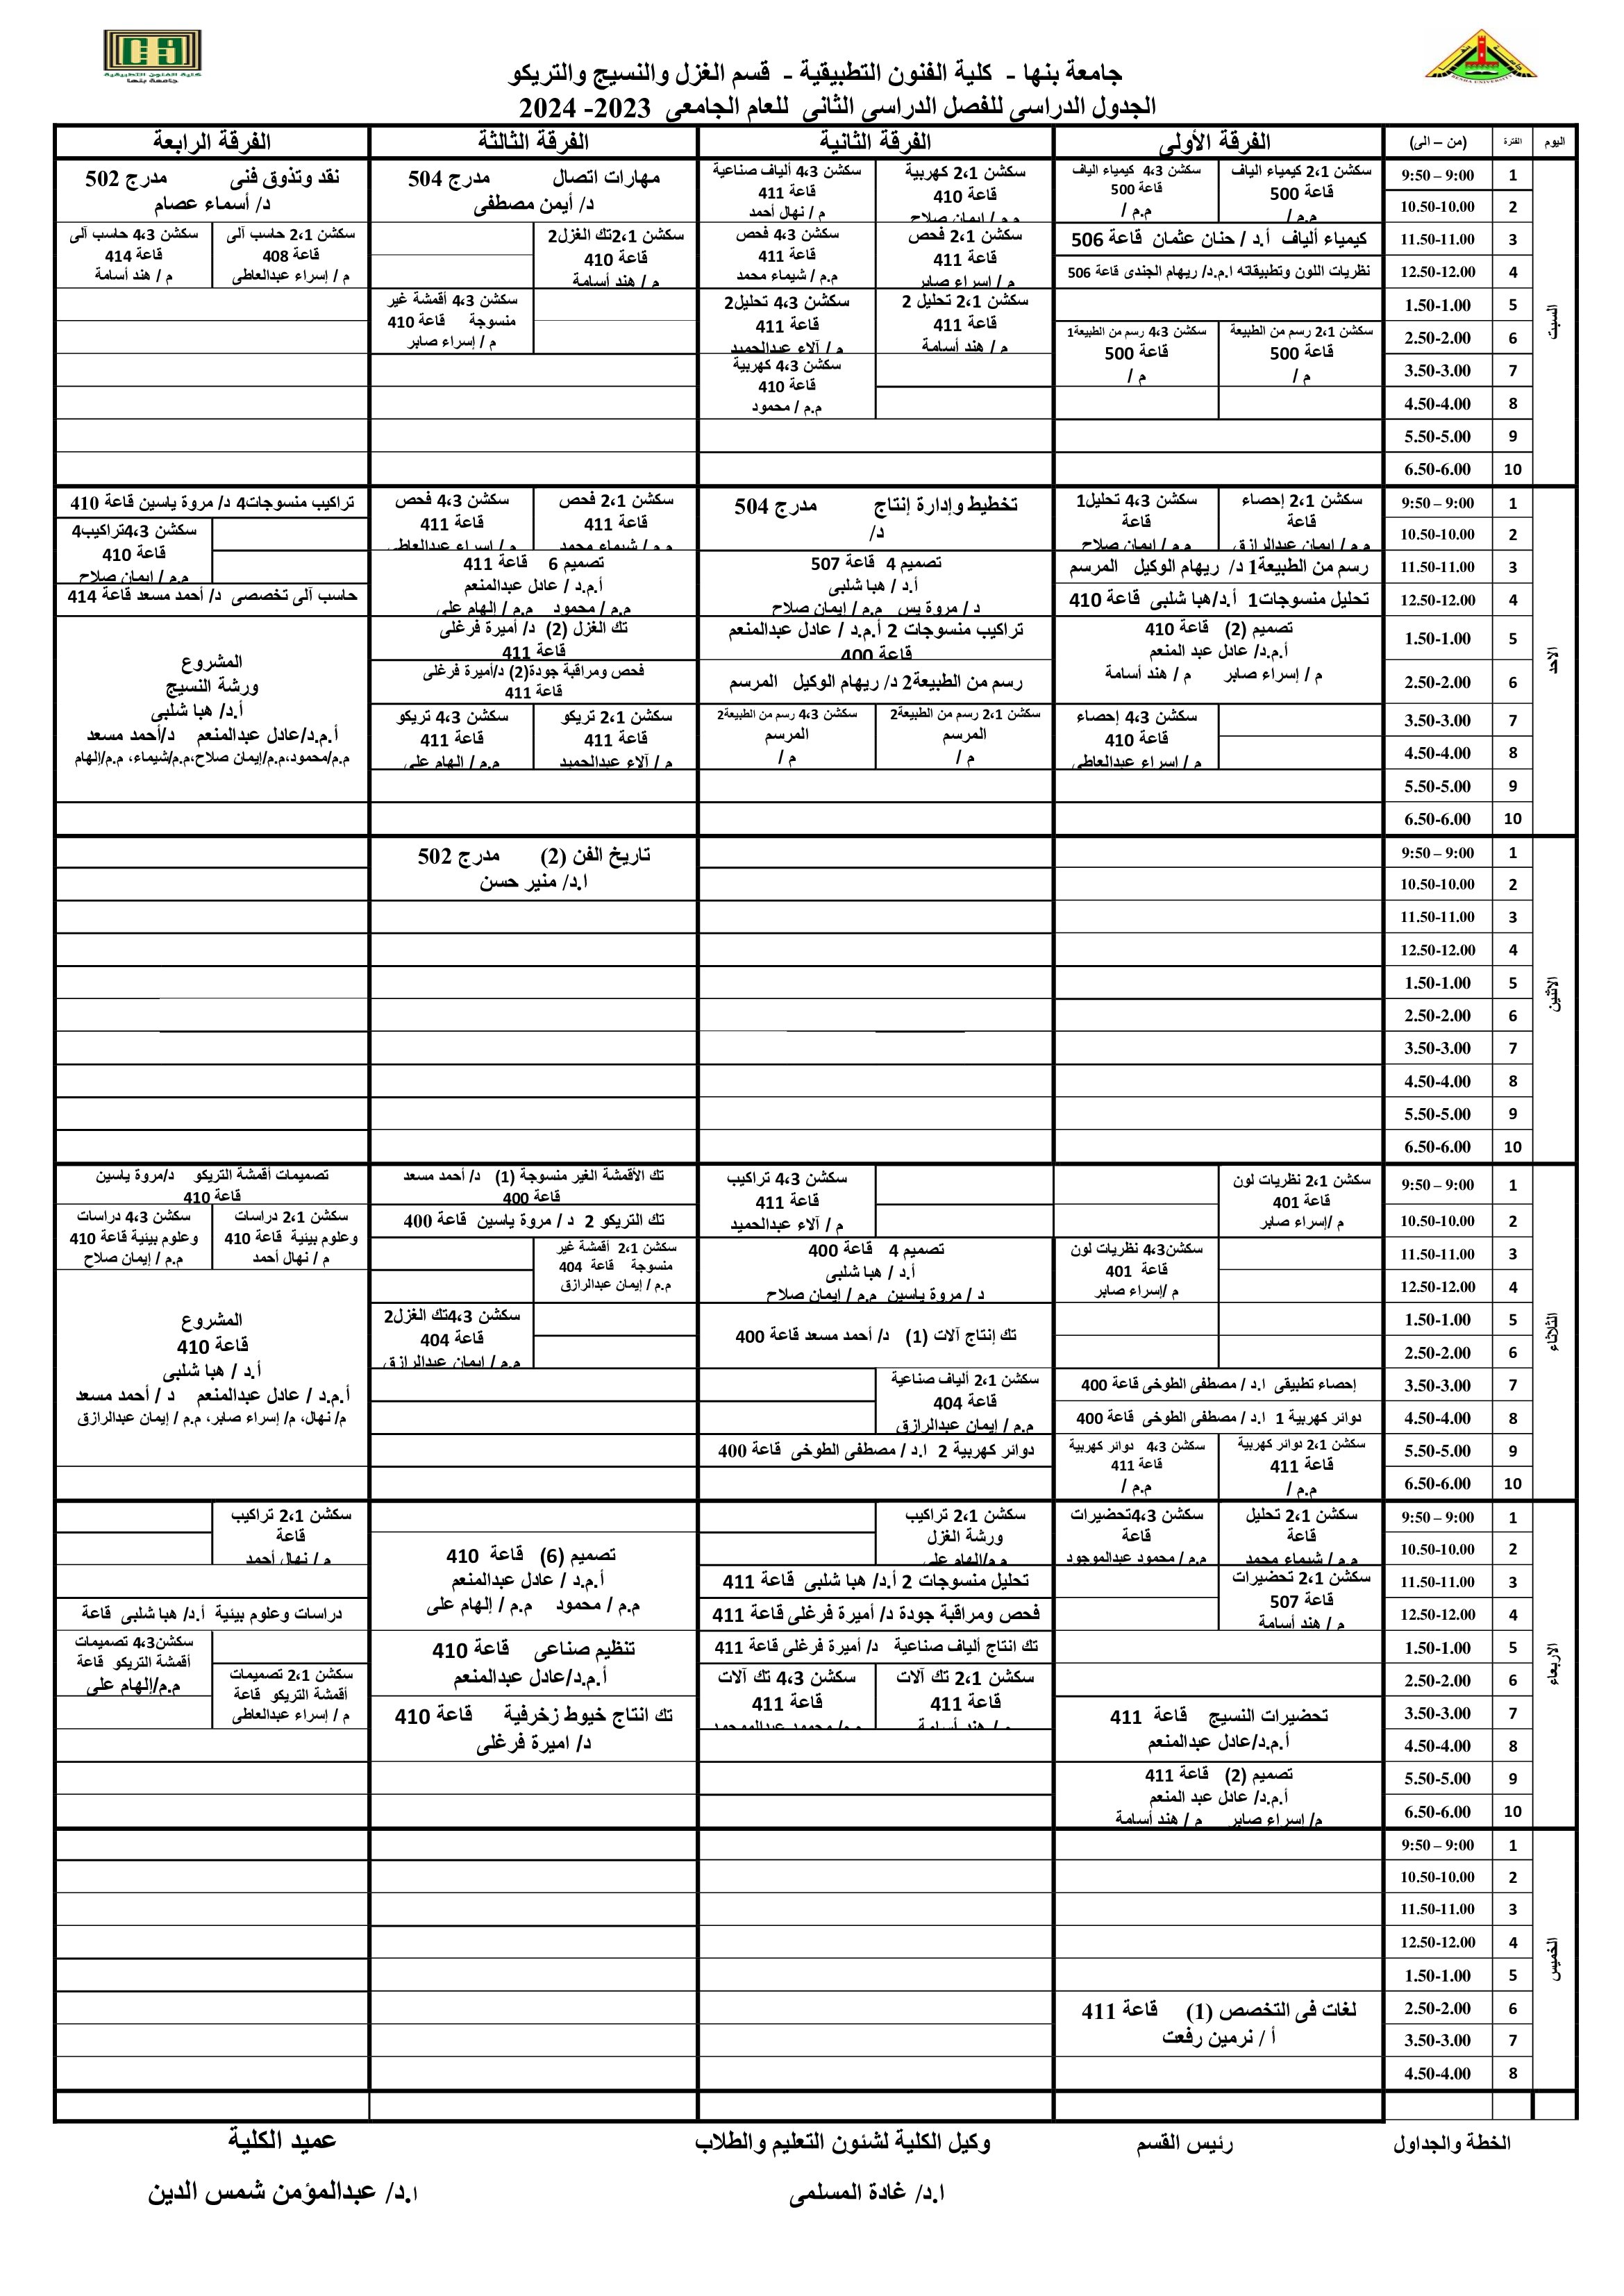 جامعة بنها - كلية الفنون التطبيقية - قسم الغزل والنسيج والتريكو
الجدول الدراسى للفصل الدراسى الثانى للعام الجامعى 2023- 2024
اليوم
الفترة
(من – الى)
الفرقة الأولى
الفرقة الثانية
الفرقة الثالثة
الفرقة الرابعة
السبت
1
9:50 – 9:00
سكشن 2،1 كيمياء الياف
قاعة 500
م.م /
سكشن 4،3 كيمياء الياف
قاعة 500
م.م /
سكشن 2،1 كهربية
قاعة 410
م.م / إيمان صلاح
سكشن 4،3 ألياف صناعية
قاعة 411
م / نهال أحمد
مهارات اتصال مدرج 504
د/ أيمن مصطفى
نقد وتذوق فنى مدرج 502
د/ أسماء عصام
2
10.50-10.00
3
11.50-11.00
كيمياء ألياف أ.د / حنان عثمان قاعة 506
سكشن 2،1 فحص
قاعة 411
م / إسراء صابر
سكشن 4،3 فحص
قاعة 411
م.م / شيماء محمد
سكشن 2،1تك الغزل2
قاعة 410
م / هند أسامة
سكشن 2،1 حاسب آلى
قاعة 408
م / إسراء عبدالعاطى
سكشن 4،3 حاسب آلى
قاعة 414
م / هند أسامة
4
12.50-12.00
نظريات اللون وتطبيقاته ا.م.د/ ريهام الجندى قاعة 506
5
1.50-1.00
سكشن 2،1 تحليل 2
قاعة 411
م / هند أسامة
سكشن 4،3 تحليل2
قاعة 411
م / آلاء عبدالحميد
سكشن 4،3 أقمشة غير
منسوجة قاعة 410
م / إسراء صابر
6
2.50-2.00
سكشن 2،1 رسم من الطبيعة
قاعة 500
م /
سكشن 4،3 رسم من الطبيعة1
قاعة 500
م /
7
3.50-3.00
سكشن 4،3 كهربية
قاعة 410
م.م / محمود
8
4.50-4.00
9
5.50-5.00
10
6.50-6.00
الاحد
1
9:50 – 9:00
سكشن 2،1 إحصاء
قاعة
م.م / إيمان عبدالرازق
سكشن 4،3 تحليل1
قاعة
م.م / إيمان صلاح
تخطيط وإدارة إنتاج مدرج 504
د/
سكشن 2،1 فحص
قاعة 411
م.م / شيماء محمد
سكشن 4،3 فحص
قاعة 411
م / إسراء عبدالعاطى
تراكيب منسوجات4 د/ مروة ياسين قاعة 410
2
10.50-10.00
سكشن 4،3تراكيب4
قاعة 410
م.م / إيمان صلاح
3
11.50-11.00
رسم من الطبيعة1 د/ ريهام الوكيل المرسم
تصميم 4 قاعة 507
أ.د / هبا شلبى
د / مروة يس م.م / إيمان صلاح
تصميم 6 قاعة 411
أ.م.د / عادل عبدالمنعم
م.م / محمود م.م / إلهام على
4
12.50-12.00
تحليل منسوجات1 أ.د/هبا شلبى قاعة 410
حاسب آلى تخصصى د/ أحمد مسعد قاعة 414
5
1.50-1.00
تصميم (2) قاعة 410
أ.م.د/ عادل عبد المنعم
م / إسراء صابر م / هند أسامة
تراكيب منسوجات 2 أ.م.د / عادل عبدالمنعم
قاعة 400
تك الغزل (2) د/ أميرة فرغلى
قاعة 411
المشروع
ورشة النسيج
أ.د/ هبا شلبى
أ.م.د/عادل عبدالمنعم د/أحمد مسعد
م.م/محمود،م.م/إيمان صلاح،م.م/شيماء، م.م/إلهام
6
2.50-2.00
رسم من الطبيعة2 د/ ريهام الوكيل المرسم
فحص ومراقبة جودة(2) د/أميرة فرغلى
قاعة 411
7
3.50-3.00
سكشن 4،3 إحصاء
قاعة 410
م / إسراء عبدالعاطى
سكشن 2،1 رسم من الطبيعة2
المرسم
م /
سكشن 4،3 رسم من الطبيعة2
المرسم
م /
سكشن 2،1 تريكو
قاعة 411
م / آلاء عبدالحميد
سكشن 4،3 تريكو
قاعة 411
م.م / إلهام على
8
4.50-4.00
9
5.50-5.00
10
6.50-6.00
الاثنين
1
9:50 – 9:00
تاريخ الفن (2) مدرج 502
ا.د/ منير حسن
2
10.50-10.00
3
11.50-11.00
4
12.50-12.00
5
1.50-1.00
6
2.50-2.00
7
3.50-3.00
8
4.50-4.00
9
5.50-5.00
10
6.50-6.00
الثلاثاء
1
9:50 – 9:00
سكشن 2،1 نظريات لون
قاعة 401
م /إسراء صابر
سكشن 4،3 تراكيب
قاعة 411
م / آلاء عبدالحميد
تك الأقمشة الغير منسوجة (1) د/ أحمد مسعد
قاعة 400
تصميمات أقمشة التريكو د/مروة ياسين
قاعة 410
2
10.50-10.00
تك التريكو 2 د / مروة ياسين قاعة 400
سكشن 2،1 دراسات
وعلوم بيئية قاعة 410
م / نهال أحمد
سكشن 4،3 دراسات
وعلوم بيئية قاعة 410
م.م / إيمان صلاح
3
11.50-11.00
سكشن4،3 نظريات لون
قاعة 401
م /إسراء صابر
تصميم 4 قاعة 400
أ.د / هبا شلبى
د / مروة ياسين م.م / إيمان صلاح
سكشن 2،1 أقمشة غير
منسوجة قاعة 404
م.م / إيمان عبدالرازق
4
12.50-12.00
المشروع
قاعة 410
أ.د / هبا شلبى
أ.م.د / عادل عبدالمنعم د / أحمد مسعد
م/ نهال، م/ إسراء صابر، م.م / إيمان عبدالرازق
5
1.50-1.00
تك إنتاج آلات (1) د/ أحمد مسعد قاعة 400
سكشن 4،3تك الغزل2
قاعة 404
م.م / إيمان عبدالرازق
6
2.50-2.00
7
3.50-3.00
إحصاء تطبيقى ا.د / مصطفى الطوخى قاعة 400
سكشن 2،1 ألياف صناعية
قاعة 404
م.م / إيمان عبدالرازق
8
4.50-4.00
دوائر كهربية 1 ا.د / مصطفى الطوخى قاعة 400
9
5.50-5.00
سكشن 2،1 دوائر كهربية
قاعة 411
م.م /
سكشن 4،3 دوائر كهربية
قاعة 411
م.م /
دوائر كهربية 2 ا.د / مصطفى الطوخى قاعة 400
10
6.50-6.00
الاربعاء
1
9:50 – 9:00
سكشن 2،1 تحليل
قاعة
م.م / شيماء محمد
سكشن 4،3تحضيرات
قاعة
م.م / محمود عبدالموجود
سكشن 2،1 تراكيب
ورشة الغزل
م.م/إلهام على
سكشن 2،1 تراكيب
قاعة
م / نهال أحمد
2
10.50-10.00
تصميم (6) قاعة 410
أ.م.د / عادل عبدالمنعم
م.م / محمود م.م / إلهام على
3
11.50-11.00
سكشن 2،1 تحضيرات
قاعة 507
م / هند أسامة
تحليل منسوجات 2 أ.د/ هبا شلبى قاعة 411
4
12.50-12.00
فحص ومراقبة جودة د/ أميرة فرغلى قاعة 411
دراسات وعلوم بيئية أ.د/ هبا شلبى قاعة
5
1.50-1.00
تك انتاج ألياف صناعية د/ أميرة فرغلى قاعة 411
تنظيم صناعى قاعة 410
أ.م.د/عادل عبدالمنعم
سكشن4،3 تصميمات
أقمشة التريكو قاعة
م.م/إلهام على
6
2.50-2.00
سكشن 2،1 تك آلات
قاعة 411
م / هند أسامة
سكشن 4،3 تك آلات
قاعة 411
م.م/ محمود عبدالموجود
سكشن 2،1 تصميمات
أقمشة التريكو قاعة
م / إسراء عبدالعاطى
7
3.50-3.00
تحضيرات النسيج قاعة 411
أ.م.د/عادل عبدالمنعم
تك انتاج خيوط زخرفية قاعة 410
د/ اميرة فرغلى
8
4.50-4.00
9
5.50-5.00
تصميم (2) قاعة 411
أ.م.د/ عادل عبد المنعم
م/ إسراء صابر م / هند أسامة
10
6.50-6.00
الخميس
1
9:50 – 9:00
2
10.50-10.00
3
11.50-11.00
4
12.50-12.00
5
1.50-1.00
6
2.50-2.00
لغات فى التخصص (1) قاعة 411
أ / نرمين رفعت
7
3.50-3.00
8
4.50-4.00
الخطة والجداول
رئيس القسم
وكيل الكلية لشئون التعليم والطلاب
عميد الكلية
ا.د/ غادة المسلمى
ا.د/ عبدالمؤمن شمس الدين